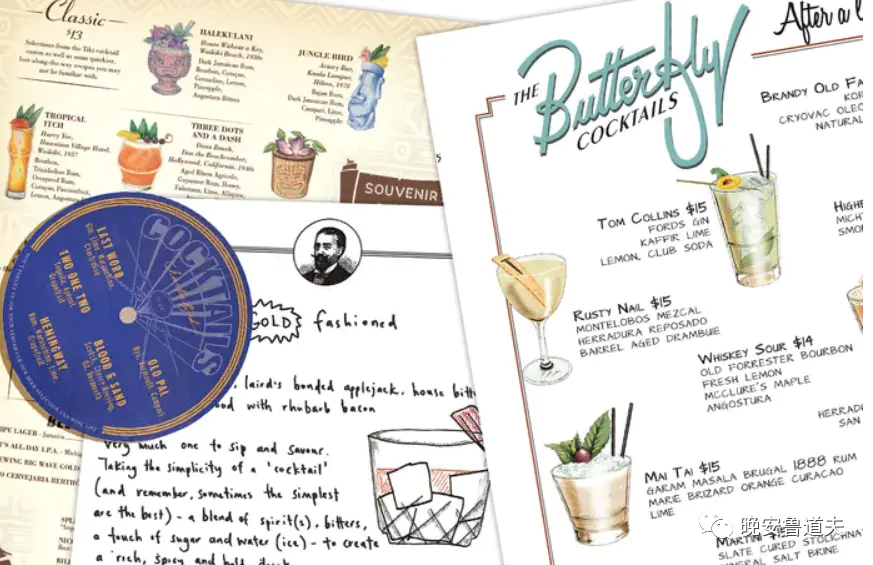 Classic
$13
Selections from the Tiki cocktail
canon as well as some quirkier,
Just-along-the-way recipes you may
not be familiar with.
HALEKULANI
House Without a Key,
Waikiki Beach, 1930s
Dark Jamaican Rum,
Bourbon, Curaçao,
Grenadine, Lemon,
Pineapple,
Angostura Bitters
JUNGLE BIRD
Aviary Bar,
Kuala Lumpur,
Hilton, 1978
Bajan Rum,
Dark Jamaican Rum,
Campari, Lime,
Pineapple
TROPICAL
ITCH
Harry Yee,
Hawaiian Village Hotel,
Waikiki, 1957
Bourbon,
Trinidadian Rum,
Overproof Rum,
Curaçao, Passionfruit,
Lemon,
THREE DOTS
AND A DASH
Donn Beach,
Don the Beachcomber,
Hollywood, California, 1940s
Aged Rhum Agricole,
Guyanese Rum, Honey,
Falernum, Lime, Allspice,
SOUVENIR
COCKTAILS
LAST WORD
Gin, Lime, Maraschino,
Chartreuse
TWO ONE TWO
Tequila, Aperol,
Grapefruit
HEMINGWAY
Rum, Maraschino, Lime,
Grapefruit
BLOOD & SAND
Scotch, Cherry Heering,
OJ, Vermouth
OLD PAL
Rye, Vermouth, Campari
PE LAGER - Jamaica
'S ALL-DAY I.P.A. - Michig
EWING BIG WAVE GOLD
O CERVEJARIA BERTHÓ
SPL
NIC
BIL
GOLD fashioned
laird's bonded applejack, house bitte
ood with rhubarb bacon
very much one to sip and savour.
Taking the simplicity of a 'cocktail'
(and remember, sometimes the simplest
are the best) - a blend of spirit(s), bitters,
a touch of sugar and water (ice) - to create
a rich, spicy and bold drink
THE
Butterfly
COCKTAILS
After a l
BRANDY OLD FA
KOR
CRYOVAC OLEO
NATURAL
TOM COLLINS $15
FORDS GIN
KAFFIR LIME
LEMON, CLUB SODA
HIGHB
MICHT
SMO
RUSTY NAIL $15
MONTELOBOS MEZCAL
HERRADURA REPOSADO
BARREL AGED DRAMBUIE
WHISKEY SOUR $14
OLD FORRESTER BOURBON
FRESH LEMON
MCCLURE'S MAPLE
ANGOSTURA
HERRADU
SAN
MAI TAI $15
GARAM MASALA BRUGAL 1888 RUM
MARIE BRIZARD ORANGE CURACAO
LIME
MARTINI $15
SLATE CURED STOLICHNA
MINERAL SALT BRINE
晚安鲁道夫